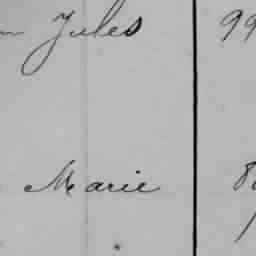 Jules 99
Marie